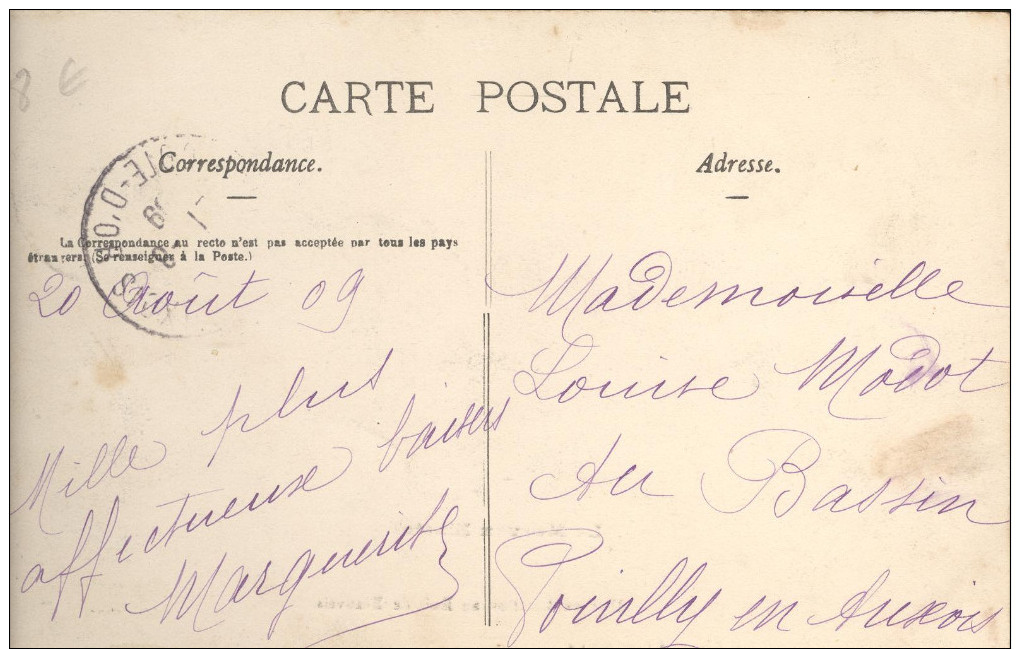 8 €
CARTE POSTALE
Correspondance.
La Correspondance au recto n'est pas acceptée par tous les pays
étrangers (Se renseigner à la Poste.)
CÔTE-D'OR
20 Août 09
Mille plus
affectueuse baisers
Marguerite
Adresse.
Mademoiselle
Louise Modot
Au Bassin
Pouilly en Auxois